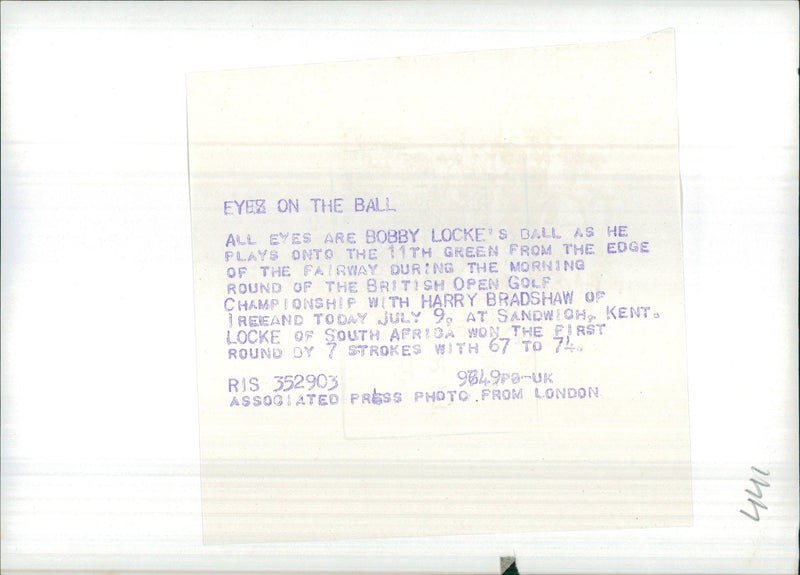 EYES ON THE BALL
ALL EYES ARE BOBBY LOCKE'S BALL AS HE
PLAYS ONTO THE 11TH GREEN FROM THE EDGE
OF THE FAIRWAY DURING THE MORNING
ROUND OF THE BRITISH OPEN GOLF
CHAMPIONSHIP WITH HARRY BRADSHAW OF
IREEAND TODAY JULY 9, AT SANDWICH, KENT.
LOCKE OF SOUTH AFRICA WON THE FIRST
ROUND BY 7 STROKES WITH 67 TO 74.
RIS 352903 9749PB-UK
ASSOCIATED PRESS PHOTO FROM LONDON
441